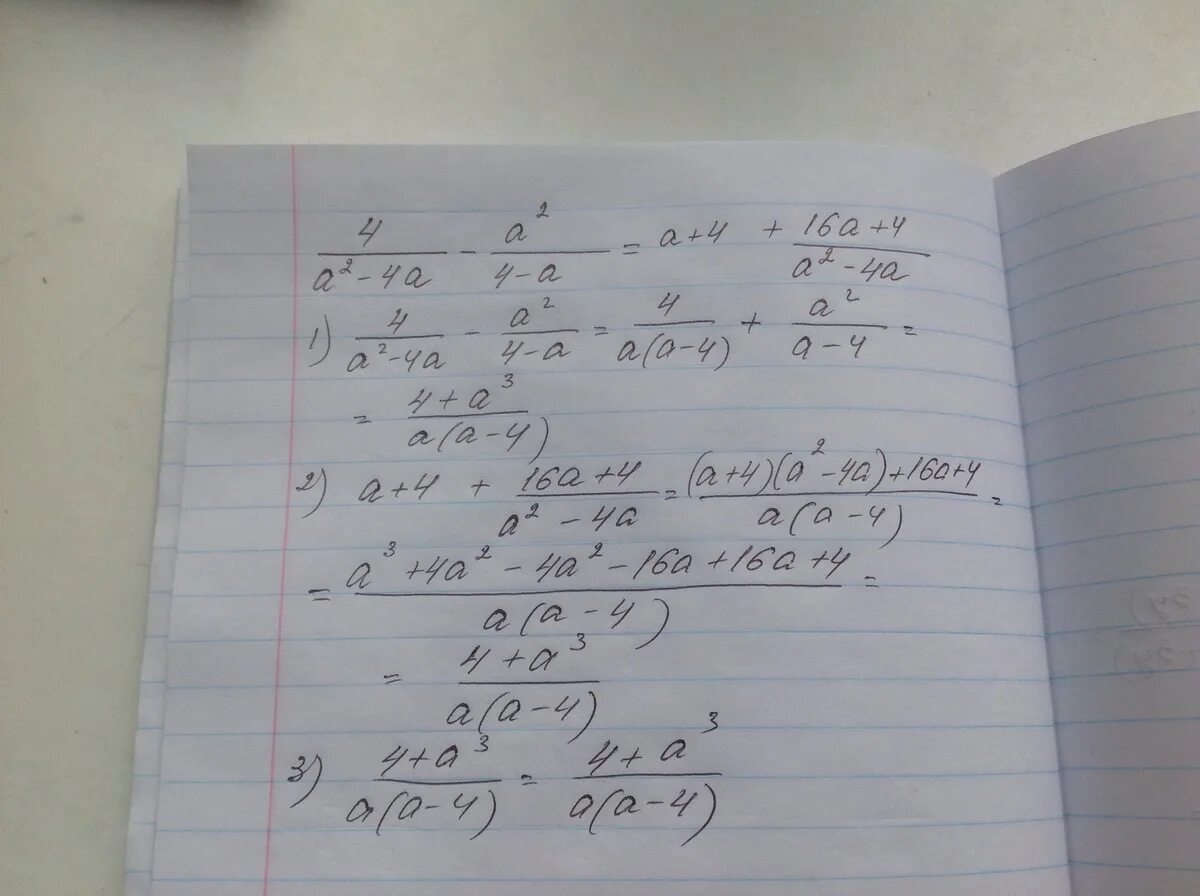 4/(a² - 4a) - a²/(4 - a) = a + 4 + (16a + 4)/(a² - 4a)
1) 4/(a² - 4a) - a²/(4 - a) = 4/(a(a - 4)) + a²/(a - 4) =
= (4 + a³)/(a(a - 4))
2) a + 4 + (16a + 4)/(a² - 4a) = ((a + 4)(a² - 4a) + 16a + 4)/(a(a - 4)) =
= (a³ + 4a² - 4a² - 16a + 16a + 4)/(a(a - 4)) =
= (4 + a³)/(a(a - 4))
3) (4 + a³)/(a(a - 4)) = (4 + a³)/(a(a - 4))